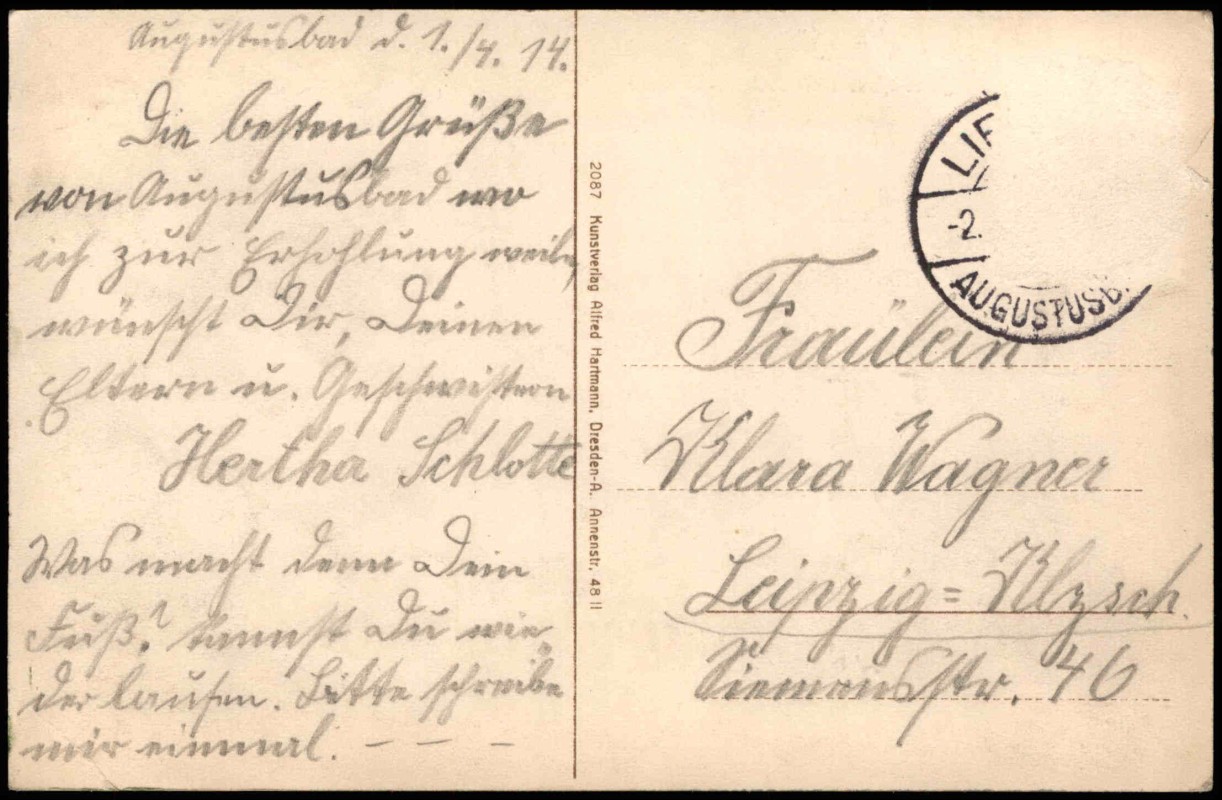 Augustusbad d. 1./4. 14.
Die besten Grüße
von Augustusbad wo
ich zur Erhohlung weile,
wünscht Dir, Deinen
Eltern u. Geschwistern
Hertha Schlotte
Was macht denn Dein
Fuß? kannst Du wie„
der laufen. Bitte schreibe
mir einmal. — — —
2087 Kunstverlag Alfred Hartmann, Dresden-A. Annenstr. 48 II
LIE
-2.
AUGUSTUSB
Fräulein
Klara Wagner
Leipzig=Klzsch.
Siemensstr. 46